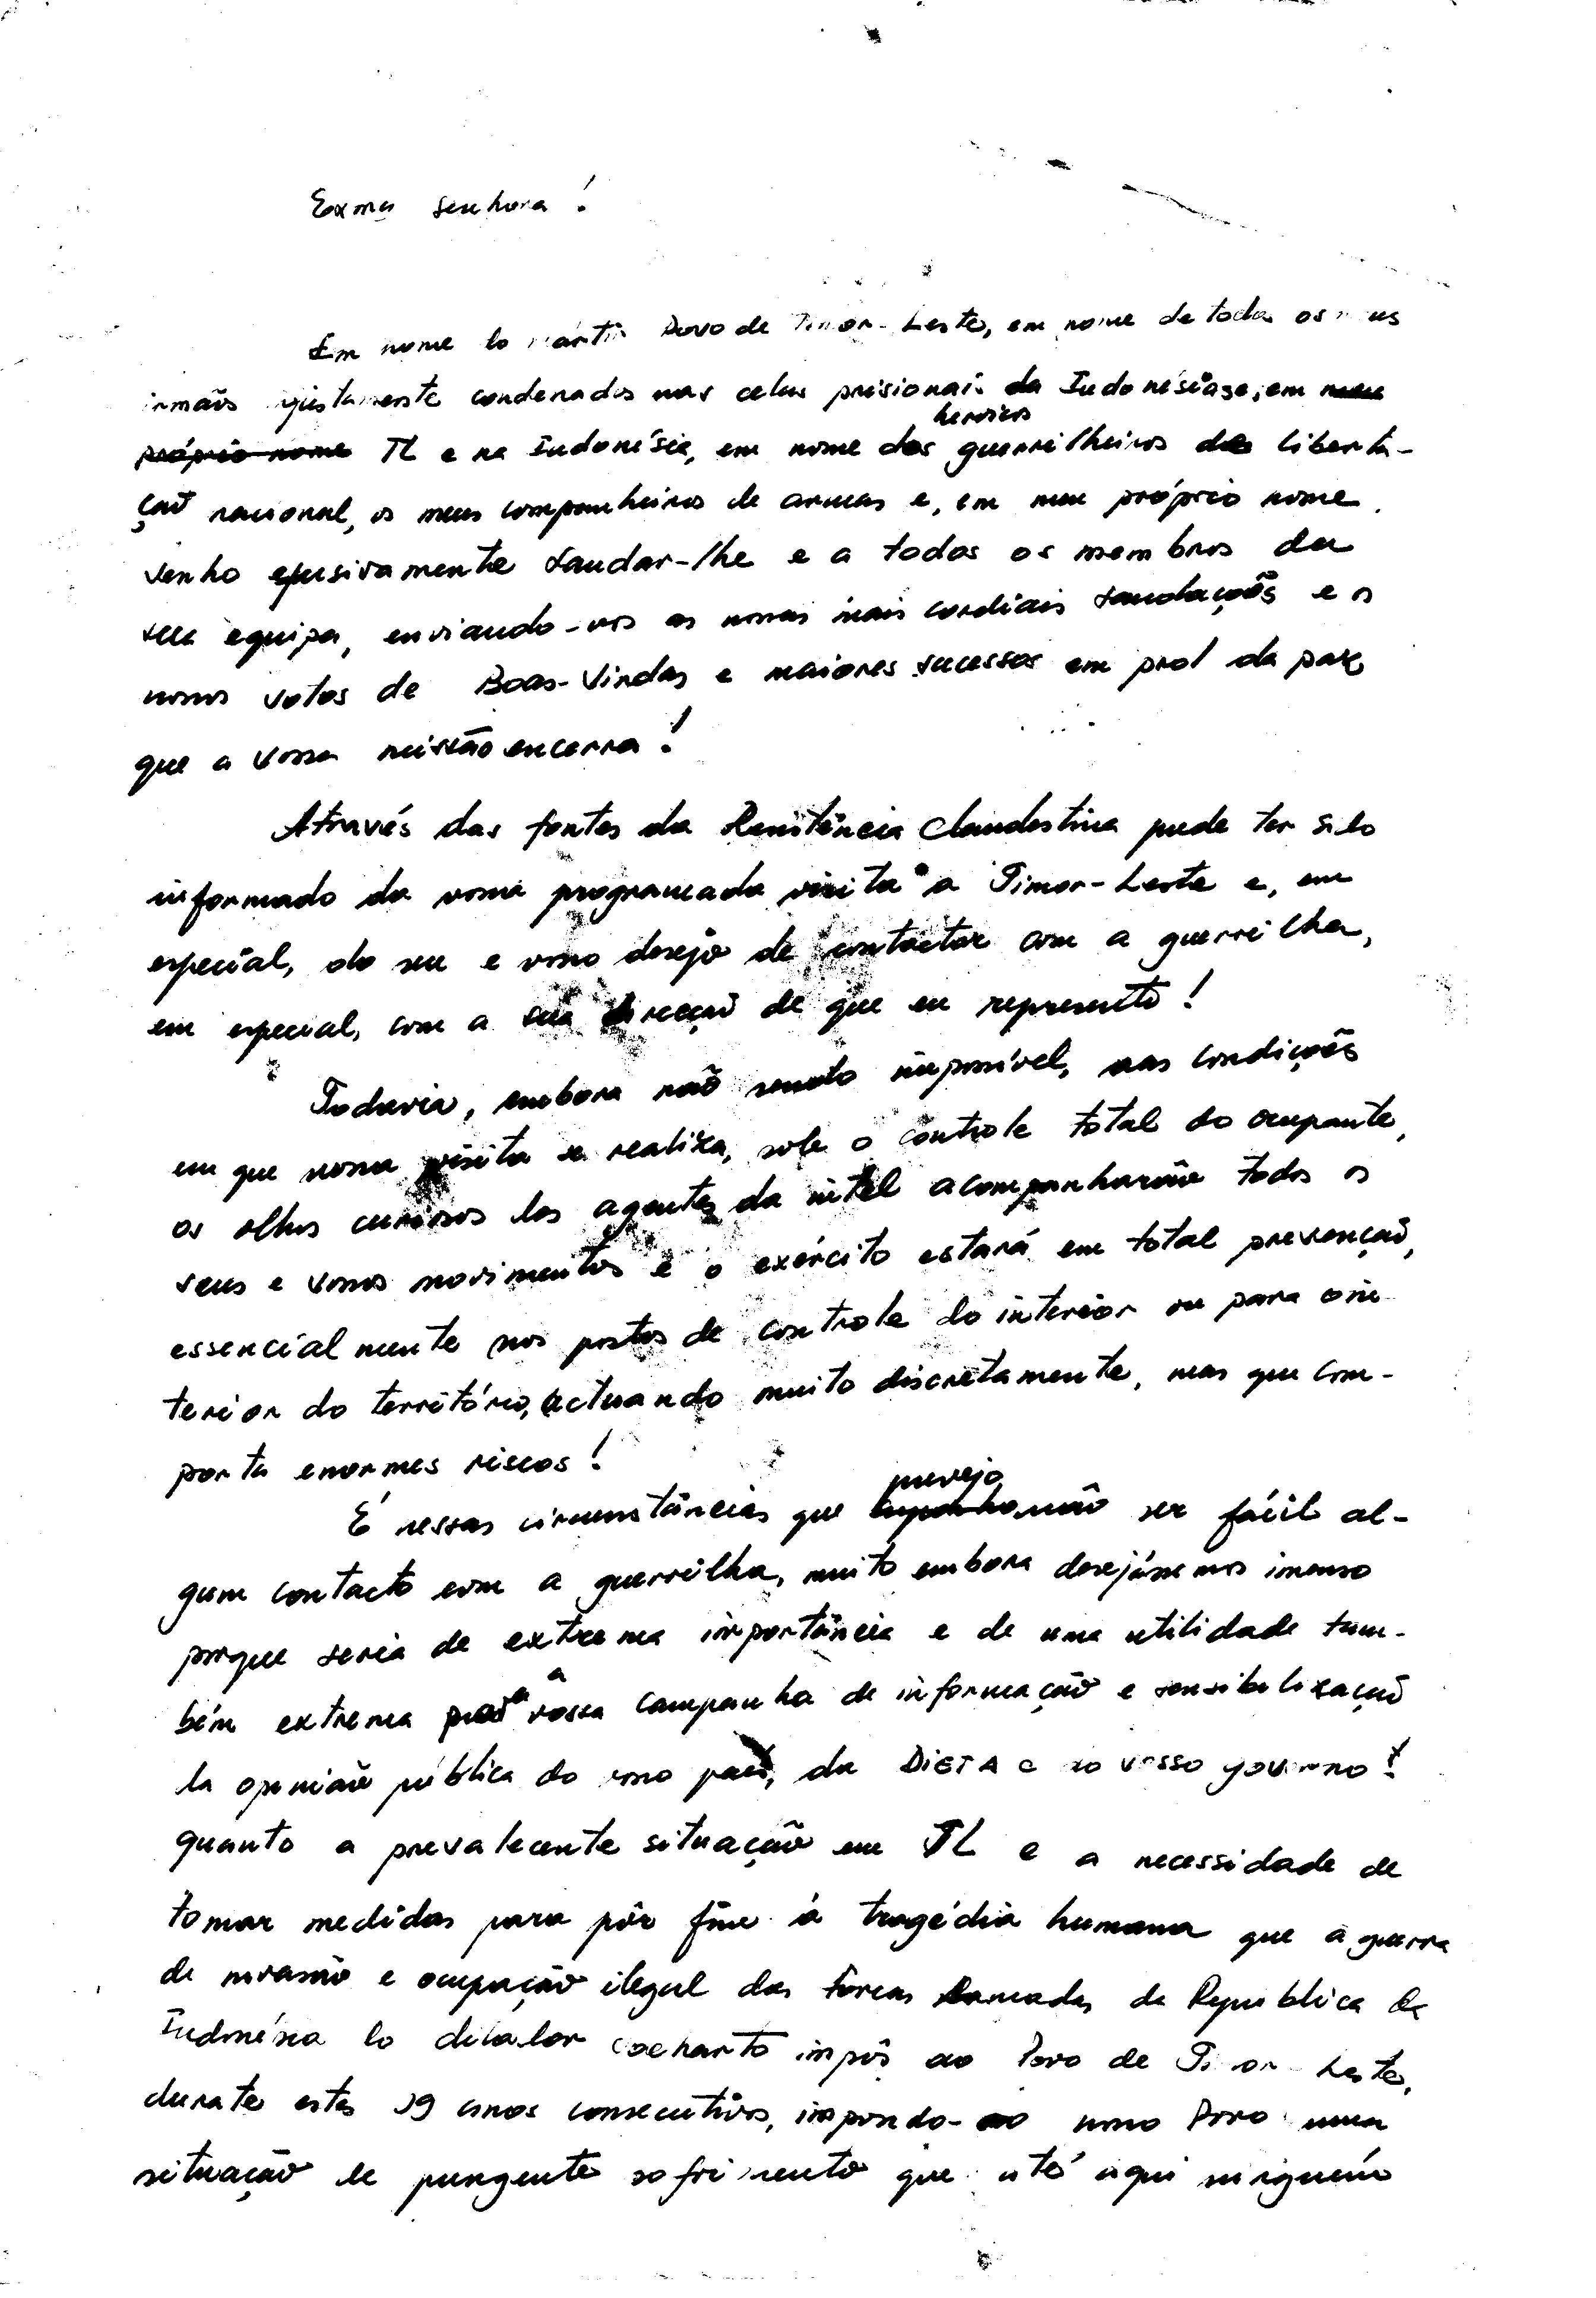 Exma senhora!
Em nome do mártir Povo de Timor-Leste, em nome de todos os meus
irmãos injustamente condenados nas celas prisionais da Indonésia, em meu
próprio nome TL e na Indonésia, em nome dos heroicos guerrilheiros da liberta-
ção nacional, os meus companheiros de armas e, em meu próprio nome,
venho efusivamente saudar-lhe e a todos os membros da
sua equipa, enviando-vos as nossas mais cordiais saudações e os
nossos votos de Boas-Vindas e maiores sucessos em prol da paz
que a vossa missão encerra!
Através das fontes da Resistência Clandestina pude ter sido
informado da vossa programada visita a Timor-Leste e, em
especial, do seu e vosso desejo de contactar com a guerrilha,
em especial, com a sua direcção de que eu represento!
Todavia, embora não sendo impossível, nas condições
em que vossa visita se realiza, sob o controle total do ocupante,
os olhos curiosos dos agentes da intel acompanharão todos os
seus e vossos movimentos e o exército estará em total prevenção,
essencialmente nos postos de controle do interior ou para o in-
terior do território, actuando muito discretamente, mas que com-
porta enormes riscos!
É nessas circunstâncias que suponho prevejo não ser fácil al-
gum contacto com a guerrilha, muito embora desejássemos imenso
porque seria de extrema importância e de uma utilidade tam-
bém extrema para a vossa campanha de informação e sensibilização
da opinião pública do vosso país, da DIETA e do vosso governo!
quanto a prevalecente situação em TL e a necessidade de
tomar medidas para pôr fim à tragédia humana que a guerra
de invasão e ocupação ilegal das forças armadas da República da
Indonésia do ditador Soeharto impôs ao Povo de Timor-Leste,
durate estes 19 anos consecutivos, impondo-ao nosso Povo uma
situação de pungente sofrimento que até aqui ninguém